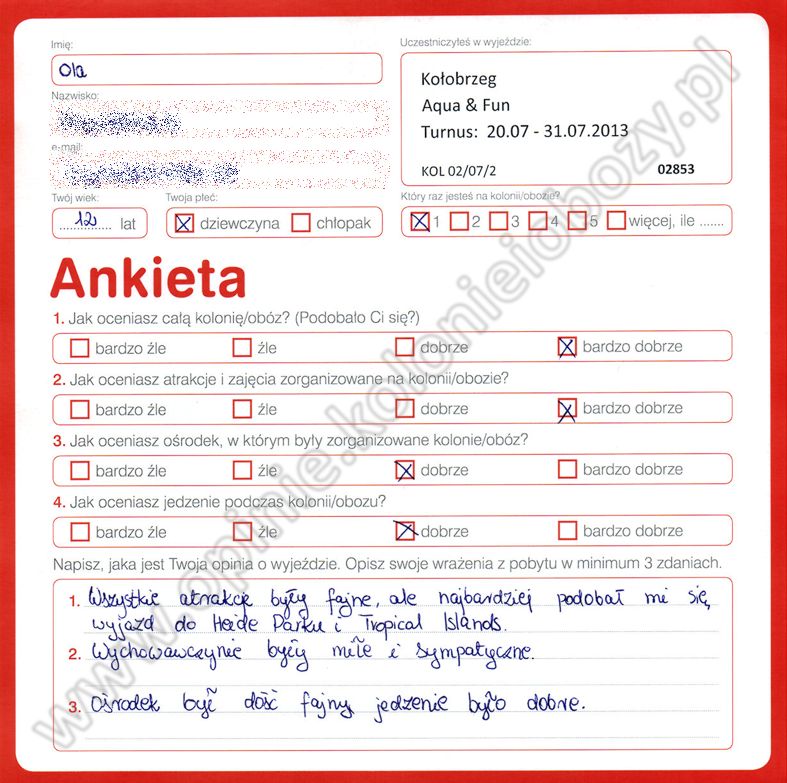 Imię:
Ola
Nazwisko:
e-mail:
Twój wiek:
12 lat
Twoja płeć:
dziewczyna chłopak
Uczestniczyłeś w wyjeździe:
Kołobrzeg
Aqua & Fun
Turnus: 20.07 - 31.07.2013
KOL 02/07/2 02853
Który raz jesteś na kolonii/obozie?
1 2 3 4 5 więcej, ile .......
Ankieta
1. Jak oceniasz całą kolonię/obóz? (Podobało Ci się?)
bardzo źle źle dobrze bardzo dobrze
2. Jak oceniasz atrakcje i zajęcia zorganizowane na kolonii/obozie?
bardzo źle źle dobrze bardzo dobrze
3. Jak oceniasz ośrodek, w którym były zorganizowane kolonie/obóz?
bardzo źle źle dobrze bardzo dobrze
4. Jak oceniasz jedzenie podczas kolonii/obozu?
bardzo źle źle dobrze bardzo dobrze
Napisz, jaka jest Twoja opinia o wyjeździe. Opisz swoje wrażenia z pobytu w minimum 3 zdaniach.
1. Wszystkie atrakcje były fajne, ale najbardziej podobał mi się
wyjazd do Heide Parku i Tropical Islands.
2. Wychowawczynie były miłe i sympatyczne.
3. Ośrodek był dość fajny, jedzenie było dobre.
www.opinie.kolonieiobozy.pl